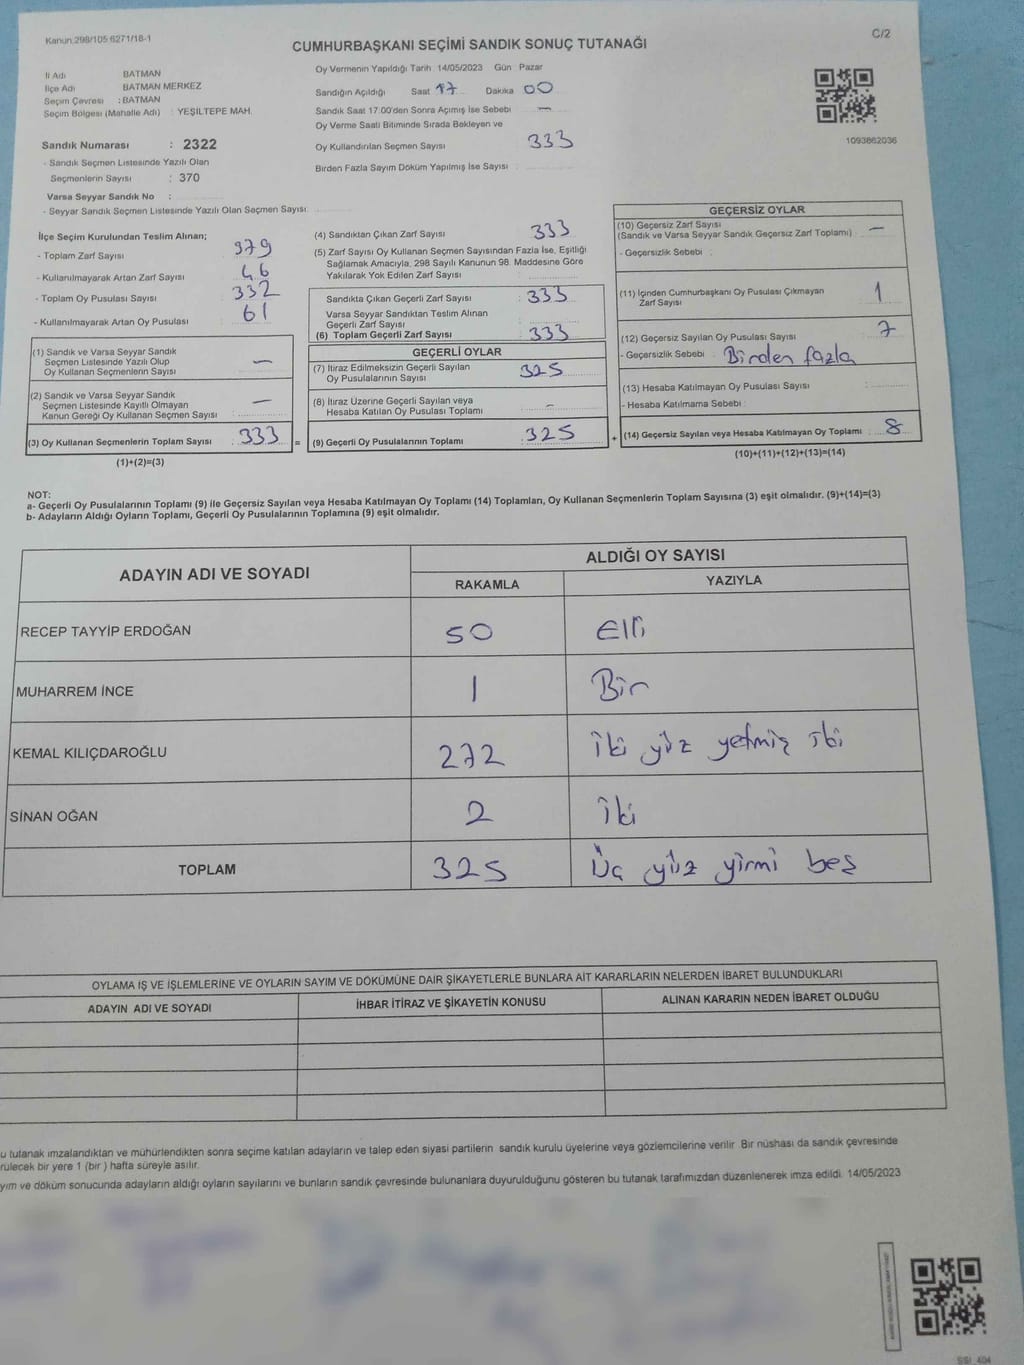 Kanun:298/105 6271/18-1
C/2
CUMHURBAŞKANI SEÇİMİ SANDIK SONUÇ TUTANAĞI
İl Adı BATMAN
İlçe Adı BATMAN MERKEZ
Seçim Çevresi : BATMAN
Seçim Bölgesi (Mahalle Adı) : YEŞİLTEPE MAH.
Oy Vermenin Yapıldığı Tarih 14/05/2023 Gün Pazar
Sandığın Açıldığı Saat 17 Dakika 00
Sandık Saat 17.00'den Sonra Açımış İse Sebebi —
Oy Verme Saati Bitiminde Sırada Bekleyen ve
Oy Kullandırılan Seçmen Sayısı 333
Birden Fazla Sayım Döküm Yapılmış İse Sayısı :
1093862036
Sandık Numarası : 2322
- Sandık Seçmen Listesinde Yazılı Olan
Seçmenlerin Sayısı : 370
Varsa Seyyar Sandık No :
- Seyyar Sandık Seçmen Listesinde Yazılı Olan Seçmen Sayısı:
İlçe Seçim Kurulundan Teslim Alınan;
- Toplam Zarf Sayısı 379
- Kullanılmayarak Artan Zarf Sayısı : 46
- Toplam Oy Pusulası Sayısı 332
- Kullanılmayarak Artan Oy Pusulası : 61
(1) Sandık ve Varsa Seyyar Sandık
Seçmen Listesinde Yazılı Olup
Oy Kullanan Seçmenlerin Sayısı : —
(2) Sandık ve Varsa Seyyar Sandık
Seçmen Listesinde Kayıtlı Olmayan
Kanun Gereği Oy Kullanan Seçmen Sayısı : —
(3) Oy Kullanan Seçmenlerin Toplam Sayısı : 333 =
(1)+(2)=(3)
(4) Sandıktan Çıkan Zarf Sayısı 333
(5) Zarf Sayısı Oy Kullanan Seçmen Sayısından Fazla İse, Eşitliği
Sağlamak Amacıyla, 298 Sayılı Kanunun 98. Maddesine Göre
Yakılarak Yok Edilen Zarf Sayısı
Sandıkta Çıkan Geçerli Zarf Sayısı : 333
Varsa Seyyar Sandıktan Teslim Alınan
Geçerli Zarf Sayısı
(6) Toplam Geçerli Zarf Sayısı : 333
GEÇERLİ OYLAR
(7) İtiraz Edilmeksizin Geçerli Sayılan
Oy Pusulalarının Sayısı 325
(8) İtiraz Üzerine Geçerli Sayılan veya
Hesaba Katılan Oy Pusulası Toplamı -
(9) Geçerli Oy Pusulalarının Toplamı : 325 +
GEÇERSİZ OYLAR
(10) Geçersiz Zarf Sayısı
(Sandık ve Varsa Seyyar Sandık Geçersiz Zarf Toplamı) : —
- Geçersizlik Sebebi :
(11) İçinden Cumhurbaşkanı Oy Pusulası Çıkmayan
Zarf Sayısı 1
(12) Geçersiz Sayılan Oy Pusulası Sayısı 7
- Geçersizlik Sebebi : Birden fazla
(13) Hesaba Katılmayan Oy Pusulası Sayısı :
- Hesaba Katılmama Sebebi :
(14) Geçersiz Sayılan veya Hesaba Katılmayan Oy Toplamı : 8
(10)+(11)+(12)+(13)=(14)
NOT:
a- Geçerli Oy Pusulalarının Toplamı (9) ile Geçersiz Sayılan veya Hesaba Katılmayan Oy Toplamı (14) Toplamları, Oy Kullanan Seçmenlerin Toplam Sayısına (3) eşit olmalıdır. (9)+(14)=(3)
b- Adayların Aldığı Oyların Toplamı, Geçerli Oy Pusulalarının Toplamına (9) eşit olmalıdır.
ADAYIN ADI VE SOYADI
ALDIĞI OY SAYISI
RAKAMLA YAZIYLA
RECEP TAYYİP ERDOĞAN 50 Elli
MUHARREM İNCE 1 Bir
KEMAL KILIÇDAROĞLU 272 iki yüz yetmiş iki
SİNAN OĞAN 2 iki
TOPLAM 325 Üç yüz yirmi beş
OYLAMA İŞ VE İŞLEMLERİNE VE OYLARIN SAYIM VE DÖKÜMÜNE DAİR ŞİKAYETLERLE BUNLARA AİT KARARLARIN NELERDEN İBARET BULUNDUKLARI
ADAYIN ADI VE SOYADI İHBAR İTİRAZ VE ŞİKAYETİN KONUSU ALINAN KARARIN NEDEN İBARET OLDUĞU
u tutanak imzalandıktan ve mühürlendikten sonra seçime katılan adayların ve talep eden siyasi partilerin sandık kurulu üyelerine veya gözlemcilerine verilir. Bir nüshası da sandık çevresinde
rülecek bir yere 1 (bir ) hafta süreyle asılır.
yım ve döküm sonucunda adayların aldığı oyların sayılarını ve bunların sandık çevresinde bulunanlara duyurulduğunu gösteren bu tutanak tarafımızdan düzenlenerek imza edildi. 14/05/2023